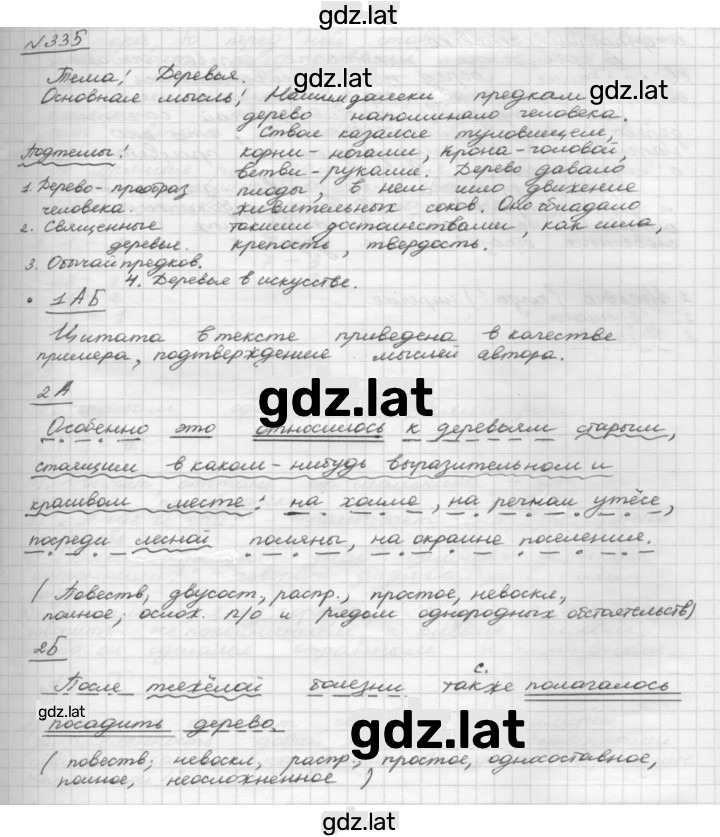 gdz.lat
№335
gdz.lat
Тема: Деревья.
gdz.lat
Основная мысль: Нашим далеким предкам
дерево напоминало человека.
Ствол казался туловищем,
Подтемы: корни-ногами, крона-головой,
ветви-руками. Дерево давало
1. Дерево-прообраз плоды, в нем шло движение
человека. живительных соков. Оно обладало
2. Священные такими достоинствами, как сила,
деревья. крепость, твердость.
3. Обычай предков.
4. Деревья в искусстве.
1АБ
Цитата в тексте приведена в качестве
примера, подтверждение мыслей автора.
2А
gdz.lat
Особенно это относилось к деревьям старым,
стоящим в каком-нибудь выразительном и
красивом месте: на холме, на речном утёсе,
посреди лесной поляны, на окраине поселения.
(Повеств, двусост., распр., простое, невоскл,
полное, ослож. п/о и рядом однородных обстоятельств)
2Б
с.
После тяжёлой болезни также полагалось
gdz.lat
посадить дерево.
gdz.lat
(повеств, невоскл, распр, простое, односоставное,
полное, неосложненное)
gdz.lat